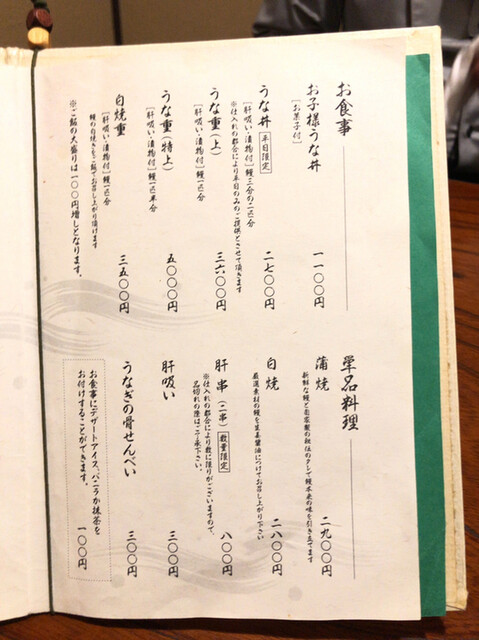 お食事
お子様うな丼 一一〇〇円
［お菓子付］
うな丼 平日限定 二七〇〇円
［肝吸い・漬物付］鰻三分の二匹分
※仕入れの都合により平日のみのご提供とさせて頂きます
うな重（上） 三六〇〇円
［肝吸い・漬物付］鰻一匹分
うな重（特上） 五〇〇〇円
［肝吸い・漬物付］鰻一匹半分
白焼重 三五〇〇円
［肝吸い・漬物付］鰻一匹分
鰻の白焼きをご飯でお召し上がり頂けます
※ご飯の大盛りは一〇〇円増しとなります。
単品料理
蒲焼 二九〇〇円
新鮮な鰻と自家製の秘伝のタレで鰻本来の味を引き立てます
白焼 二八〇〇円
厳選素材の鰻を生姜醤油につけてお召し上がり下さい
肝串（二串） 数量限定 八〇〇円
※仕入れの都合により数に限りがございますので、
品切れの際はご了承下さい。
肝吸い 三〇〇円
うなぎの骨せんべい 三〇〇円
お食事にデザートアイス、バニラか抹茶を
お付けすることができます。 一〇〇円